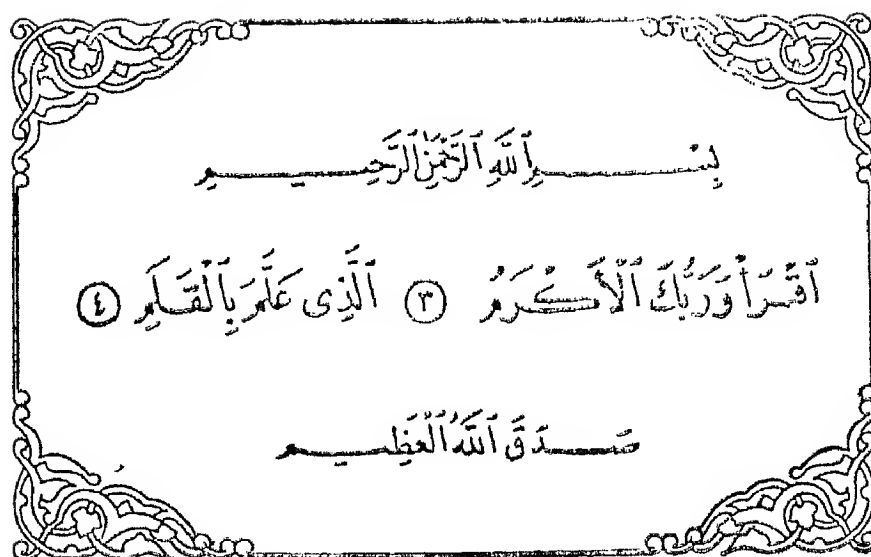 بِسْمِ ٱللَّهِ ٱلرَّحْمَٰنِ ٱلرَّحِيمِ
ٱقْرَأْ وَرَبُّكَ ٱلْأَكْرَمُ ٣ ٱلَّذِى عَلَّمَ بِٱلْقَلَمِ ٤
صَدَقَ ٱللَّهُ ٱلْعَظِيم